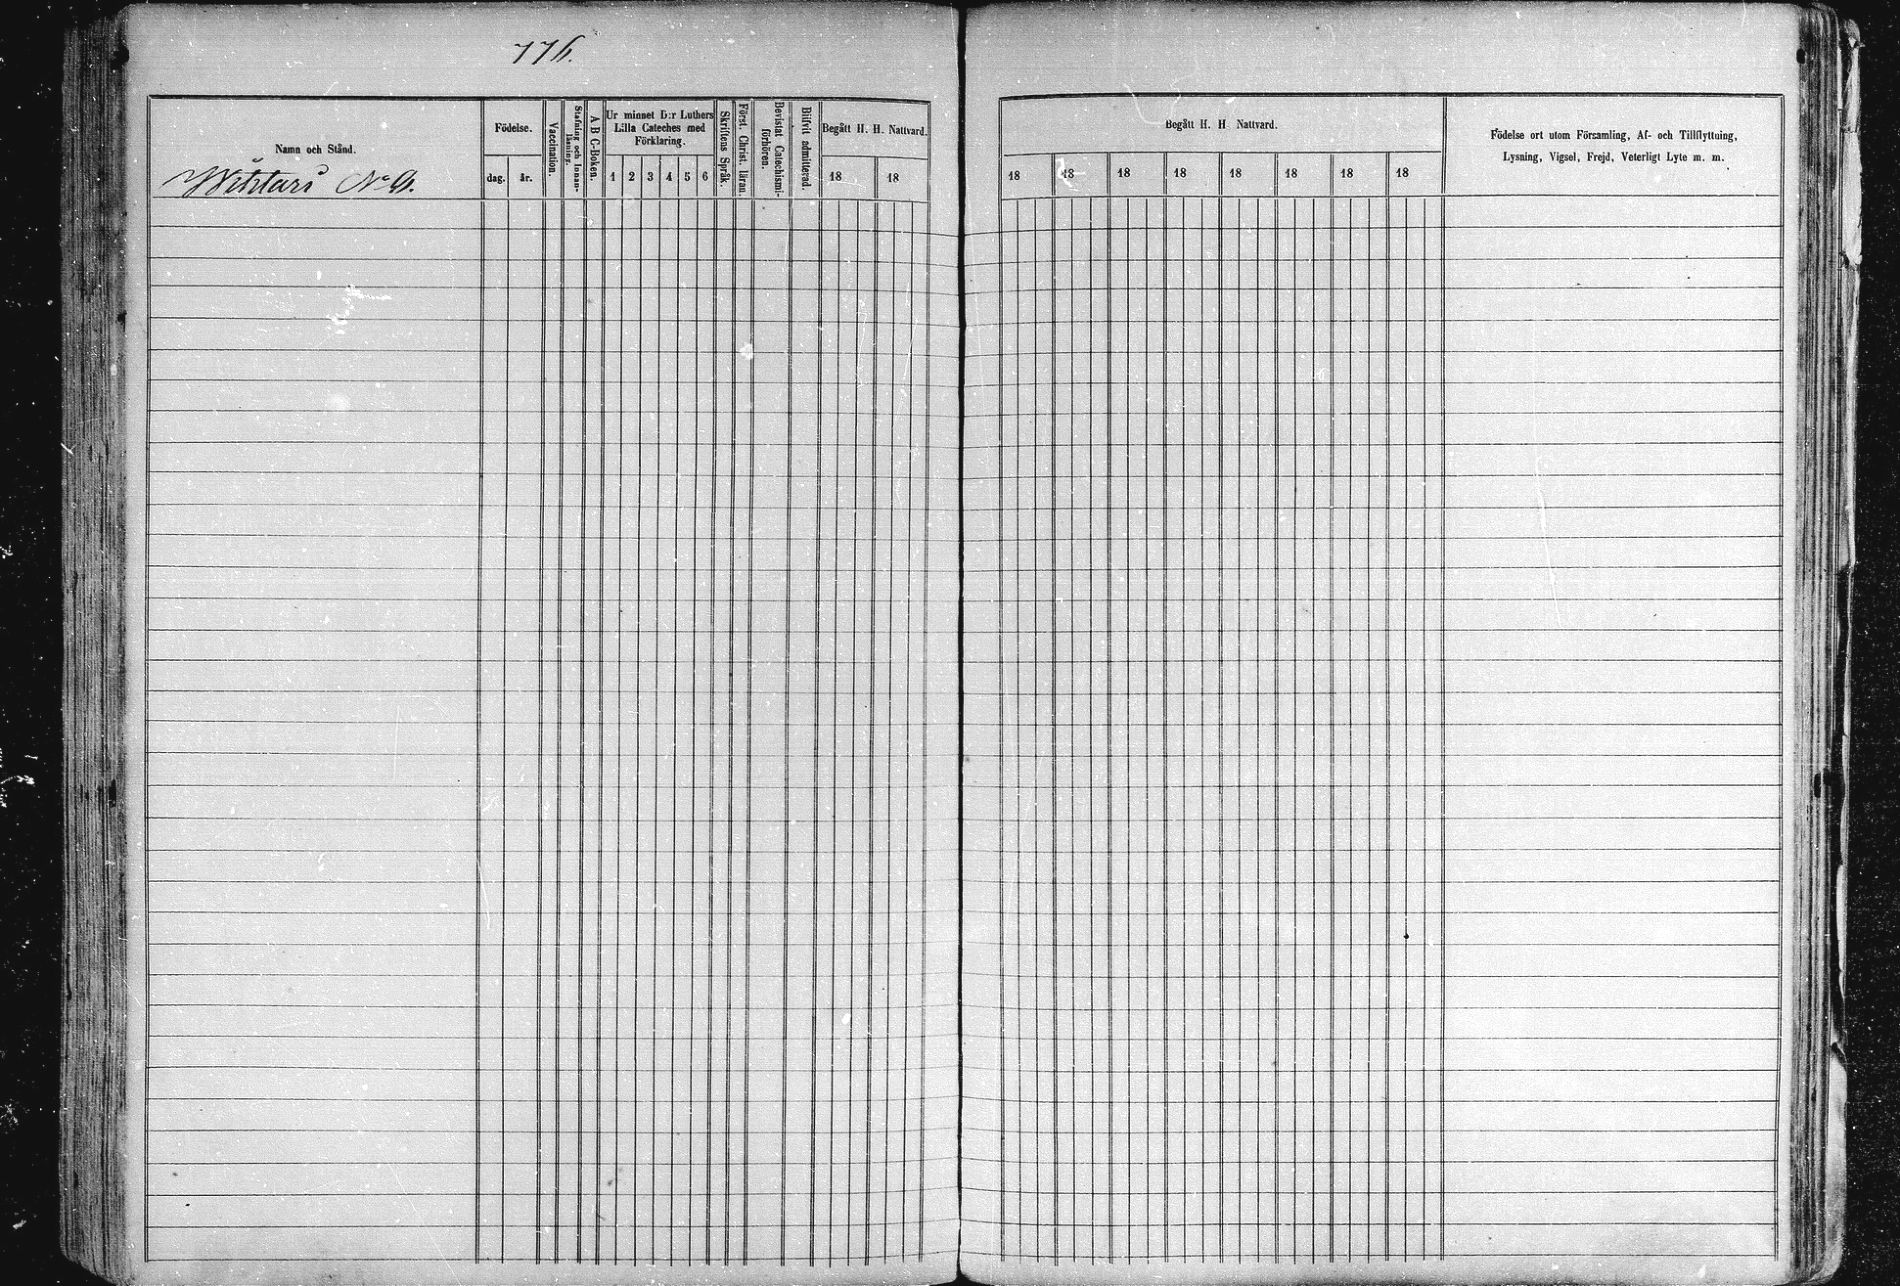 776.
Namn och Stånd.
Wihtari No 9.
Födelse.
dag.
år.
Vaccination.
Stafning och Innan-
läsning.
A B C-Boken.
Ur minnet D:r Luthers
Lilla Cateches med
Förklaring.
1 2 3 4 5 6
Skriftens Språk.
Först. Christ. läran.
Bevistat Catechismi-
förhören.
Blifvit admitterad.
Begått H. H. Nattvard.
18 18
Begått H. H. Nattvard.
18 18 18 18 18 18 18 18
Födelse ort utom Församling, Af- och Tillflyttning,
Lysning, Vigsel, Frejd, Veterligt Lyte m. m.